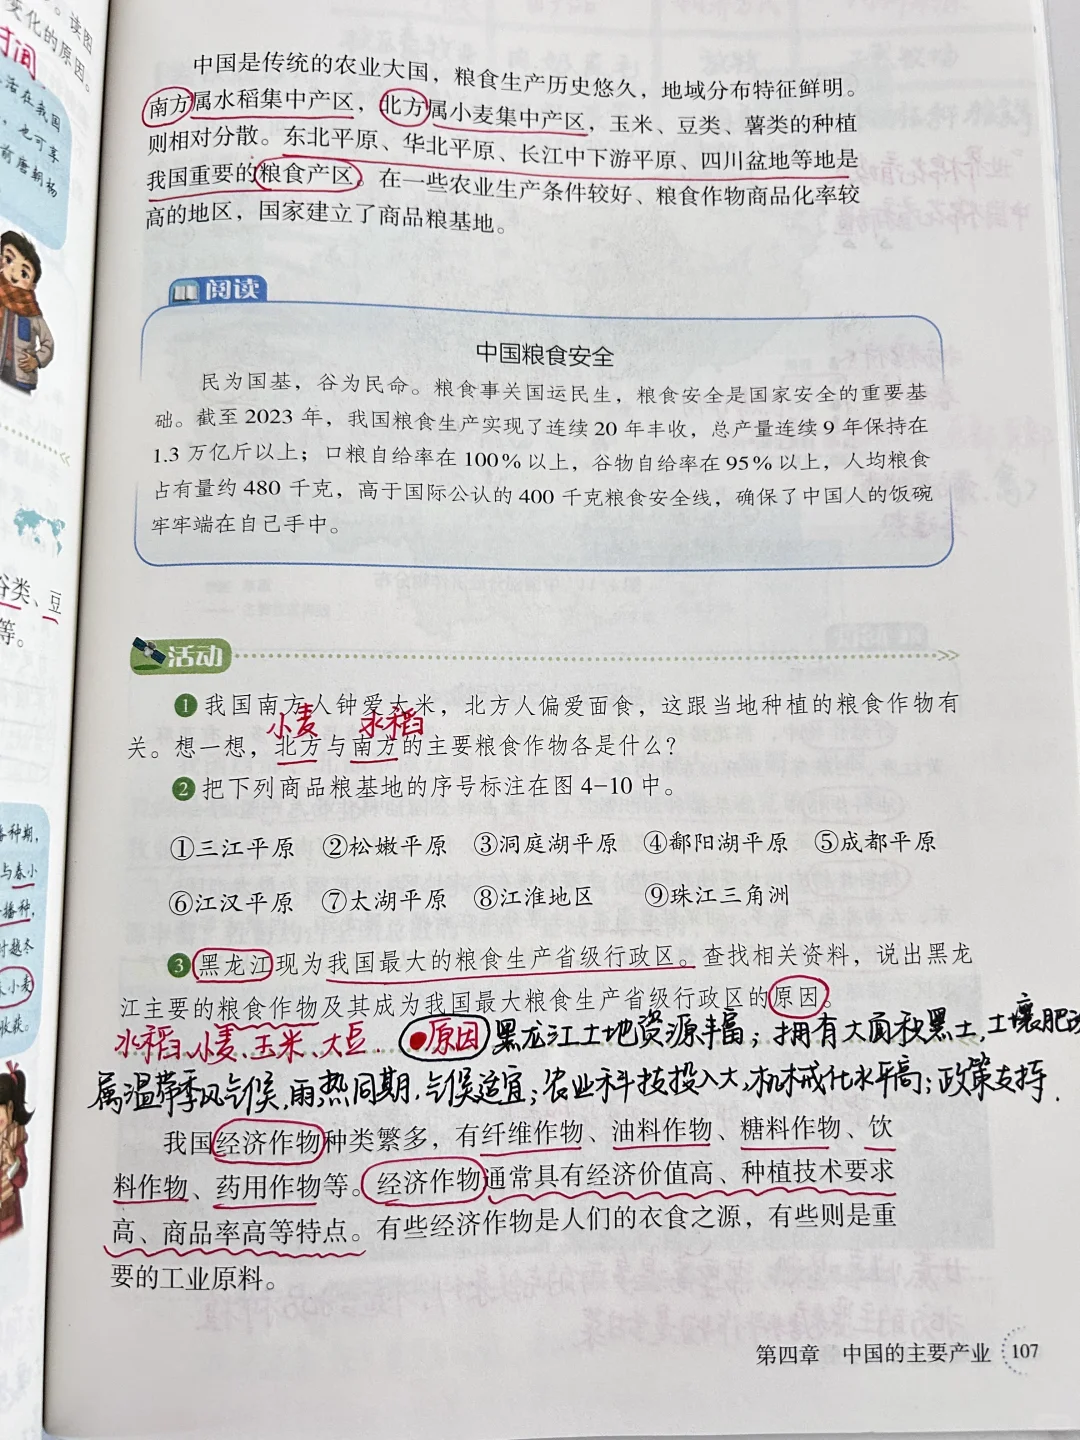 。读图
变化的原因。
时间
活在我国
，也可享
前唐朝杨
谷类、豆
等。
播种期，
与春小
播种，
时越冬
冬小麦
收获。
中国是传统的农业大国，粮食生产历史悠久，地域分布特征鲜明。
南方属水稻集中产区，北方属小麦集中产区，玉米、豆类、薯类的种植
则相对分散。东北平原、华北平原、长江中下游平原、四川盆地等地是
我国重要的粮食产区。在一些农业生产条件较好、粮食作物商品化率较
高的地区，国家建立了商品粮基地。
阅读
中国粮食安全
民为国基，谷为民命。粮食事关国运民生，粮食安全是国家安全的重要基
础。截至 2023 年，我国粮食生产实现了连续 20 年丰收，总产量连续 9 年保持在
1.3 万亿斤以上；口粮自给率在 100% 以上，谷物自给率在 95% 以上，人均粮食
占有量约 480 千克，高于国际公认的 400 千克粮食安全线，确保了中国人的饭碗
牢牢端在自己手中。
活动
❶ 我国南方人钟爱大米，北方人偏爱面食，这跟当地种植的粮食作物有
小麦 水稻
关。想一想，北方与南方的主要粮食作物各是什么？
❷ 把下列商品粮基地的序号标注在图 4-10 中。
①三江平原 ②松嫩平原 ③洞庭湖平原 ④鄱阳湖平原 ⑤成都平原
⑥江汉平原 ⑦太湖平原 ⑧江淮地区 ⑨珠江三角洲
❸ 黑龙江现为我国最大的粮食生产省级行政区。查找相关资料，说出黑龙
江主要的粮食作物及其成为我国最大粮食生产省级行政区的原因。
水稻、小麦、玉米、大豆 原因 黑龙江土地资源丰富；拥有大面积黑土，土壤肥沃
属温带季风气候，雨热同期，气候适宜；农业科技投入大，机械化水平高；政策支持.
我国经济作物种类繁多，有纤维作物、油料作物、糖料作物、饮
料作物、药用作物等。经济作物通常具有经济价值高、种植技术要求
高、商品率高等特点。有些经济作物是人们的衣食之源，有些则是重
要的工业原料。
第四章 中国的主要产业 107